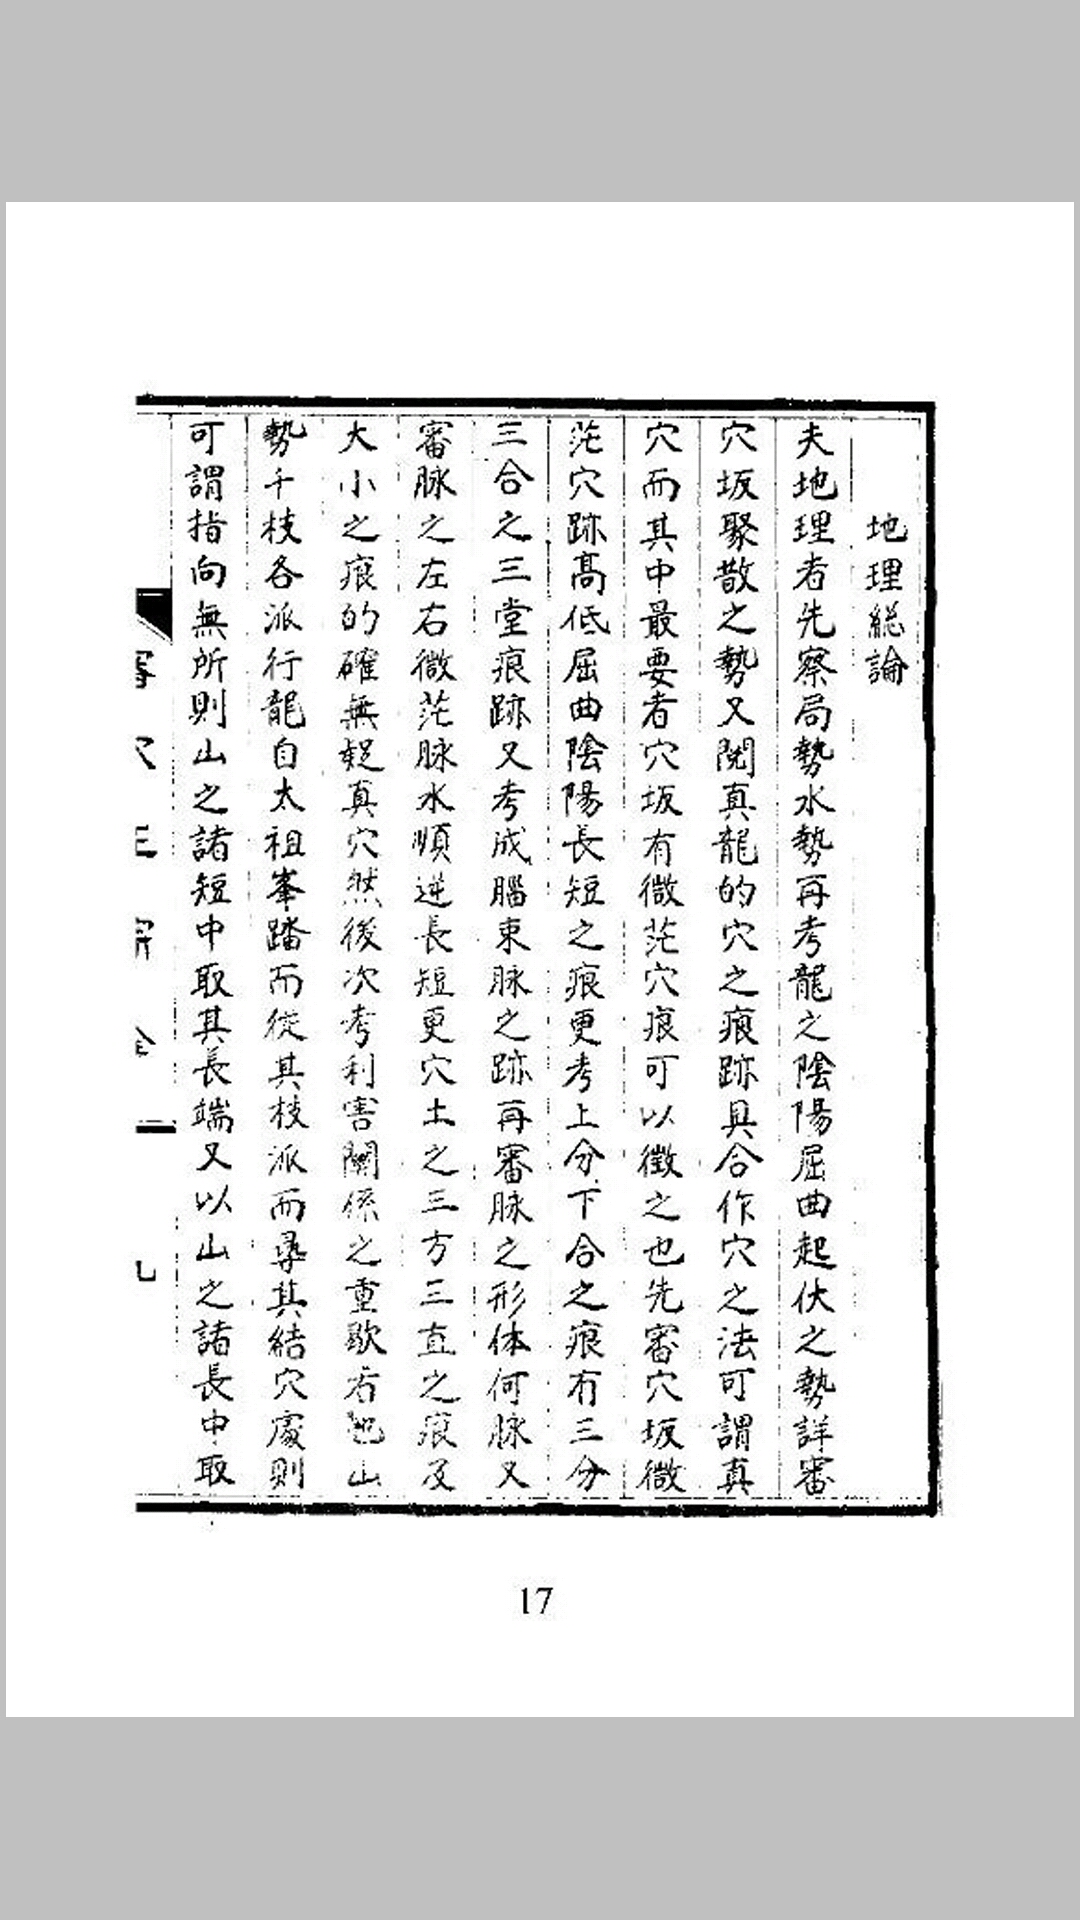 地理総論
夫地理者先察局勢水勢再考龍之陰陽屈曲起伏之勢詳審
穴坂聚散之勢又閲真龍的穴之痕跡具合作穴之法可謂真
穴而其中最要者穴坂有微茫穴痕可以徴之也先審穴坂微
茫穴跡髙低屈曲陰陽長短之痕更考上分下合之痕有三分
三合之三堂痕跡又考成腦束脉之跡再審脉之形体何脉又
審脉之左右微茫脉水順逆長短更穴土之三方三直之痕及
大小之痕的確無疑真穴然後次考利害關係之重歇右也山
勢千枝各派行龍自太祖峯踏而従其枝派而尋其結穴處則
可謂指向無所則山之諸短中取其長端又以山之諸長中取
審穴正宗全
九
17